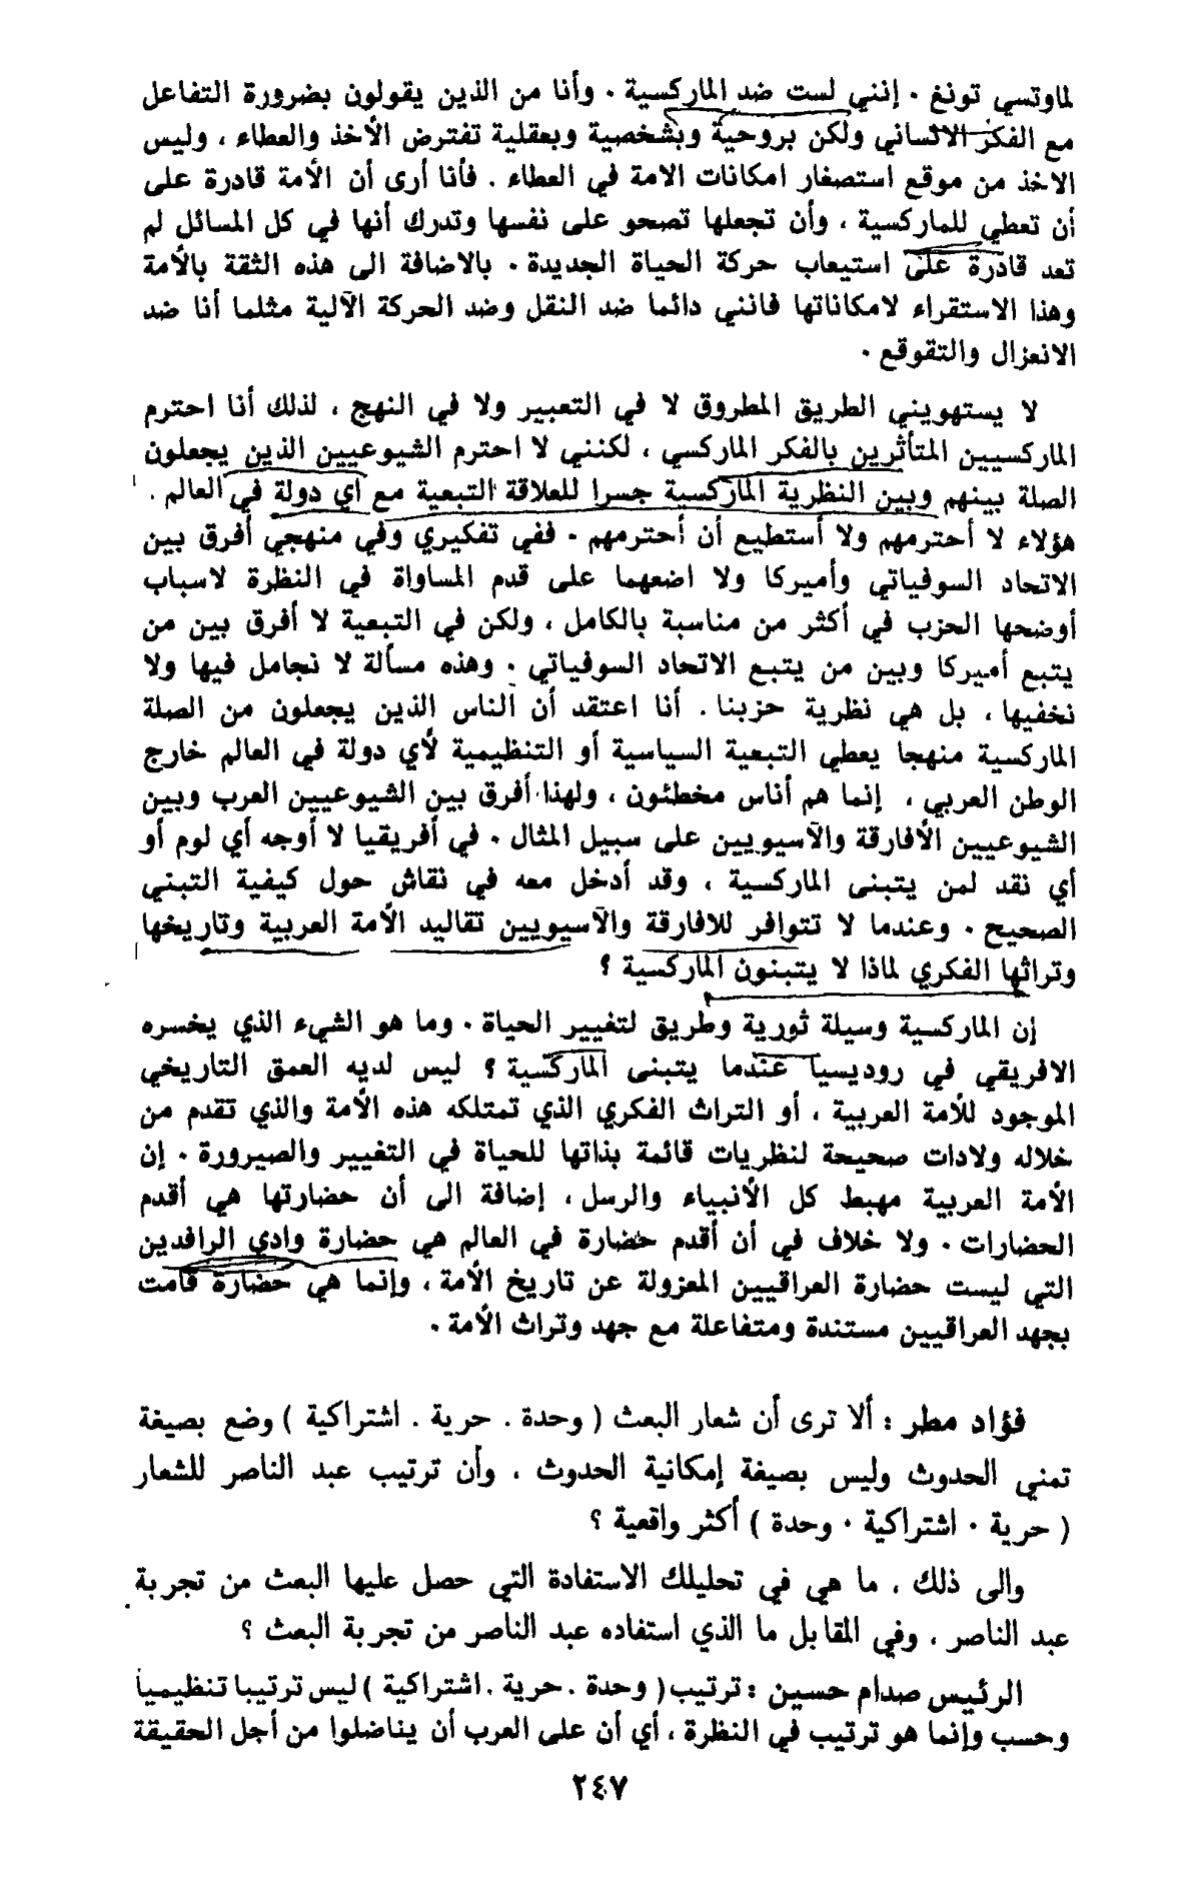 لماوتسي تونغ ٠ إنني لست ضد الماركسية ٠ وأنا من الذين يقولون بضرورة التفاعل
مع الفكر الانساني ولكن بروحية وبشخصية وبعقلية تفترض الأخذ والعطاء ، وليس
الاخذ من موقع استصغار امكانات الامة في العطاء . فأنا أرى أن الأمة قادرة على
أن تعطي للماركسية ، وأن تجعلها تصحو على نفسها وتدرك أنها في كل المسائل لم
تعد قادرة على استيعاب حركة الحياة الجديدة ٠ بالاضافة الى هذه الثقة بالأمة
وهذا الاستقراء لامكاناتها فانني دائما ضد النقل وضد الحركة الآلية مثلما أنا ضد
الانعزال والتقوقع ٠
لا يستهويني الطريق المطروق لا في التعبير ولا في النهج ، لذلك أنا احترم
الماركسيين المتأثرين بالفكر الماركسي ، لكنني لا احترم الشيوعيين الذين يجعلون
الصلة بينهم وبين النظرية الماركسية جسرا للعلاقة التبعية مع أي دولة في العالم .
هؤلاء لا أحترمهم ولا أستطيع أن أحترمهم ٠ ففي تفكيري وفي منهجي أفرق بين
الاتحاد السوفياتي وأميركا ولا اضعهما على قدم المساواة في النظرة لاسباب
أوضحها الحزب في أكثر من مناسبة بالكامل ، ولكن في التبعية لا أفرق بين من
يتبع أميركا وبين من يتبع الاتحاد السوفياتي ٠ وهذه مسألة لا نجامل فيها ولا
نخفيها ، بل هي نظرية حزبنا . أنا اعتقد أن الناس الذين يجعلون من الصلة
الماركسية منهجا يعطي التبعية السياسية أو التنظيمية لأي دولة في العالم خارج
الوطن العربي ، إنما هم أناس مخطئون ، ولهذا أفرق بين الشيوعيين العرب وبين
الشيوعيين الأفارقة والآسيويين على سبيل المثال ٠ في أفريقيا لا أوجه أي لوم أو
أي نقد لمن يتبنى الماركسية ، وقد أدخل معه في نقاش حول كيفية التبني
الصحيح ٠ وعندما لا تتوافر للافارقة والآسيويين تقاليد الأمة العربية وتاريخها
وتراثها الفكري لماذا لا يتبنون الماركسية ؟
إن الماركسية وسيلة ثورية وطريق لتغيير الحياة ٠ وما هو الشيء الذي يخسره
الافريقي في روديسيا عندما يتبنى الماركسية ؟ ليس لديه العمق التاريخي
الموجود للأمة العربية ، أو التراث الفكري الذي تمتلكه هذه الأمة والذي تقدم من
خلاله ولادات صحيحة لنظريات قائمة بذاتها للحياة في التغيير والصيرورة ٠ إن
الأمة العربية مهبط كل الأنبياء والرسل ، إضافة الى أن حضارتها هي أقدم
الحضارات ٠ ولا خلاف في أن أقدم حضارة في العالم هي حضارة وادي الرافدين
التي ليست حضارة العراقيين المعزولة عن تاريخ الأمة ، وإنما هي حضارة قامت
بجهد العراقيين مستندة ومتفاعلة مع جهد وتراث الأمة ٠
فؤاد مطر : ألا ترى أن شعار البعث ( وحدة . حرية . اشتراكية ) وضع بصيغة
تمني الحدوث وليس بصيغة إمكانية الحدوث ، وأن ترتيب عبد الناصر للشعار
( حرية ٠ اشتراكية ٠ وحدة ) أكثر واقعية ؟
والى ذلك ، ما هي في تحليلك الاستفادة التي حصل عليها البعث من تجربة
عبد الناصر ، وفي المقابل ما الذي استفاده عبد الناصر من تجربة البعث ؟
الرئيس صدام حسين : ترتيب ( وحدة . حرية . اشتراكية ) ليس ترتيبا تنظيميا
وحسب وإنما هو ترتيب في النظرة ، أي أن على العرب أن يناضلوا من أجل الحقيقة
٢٤٧